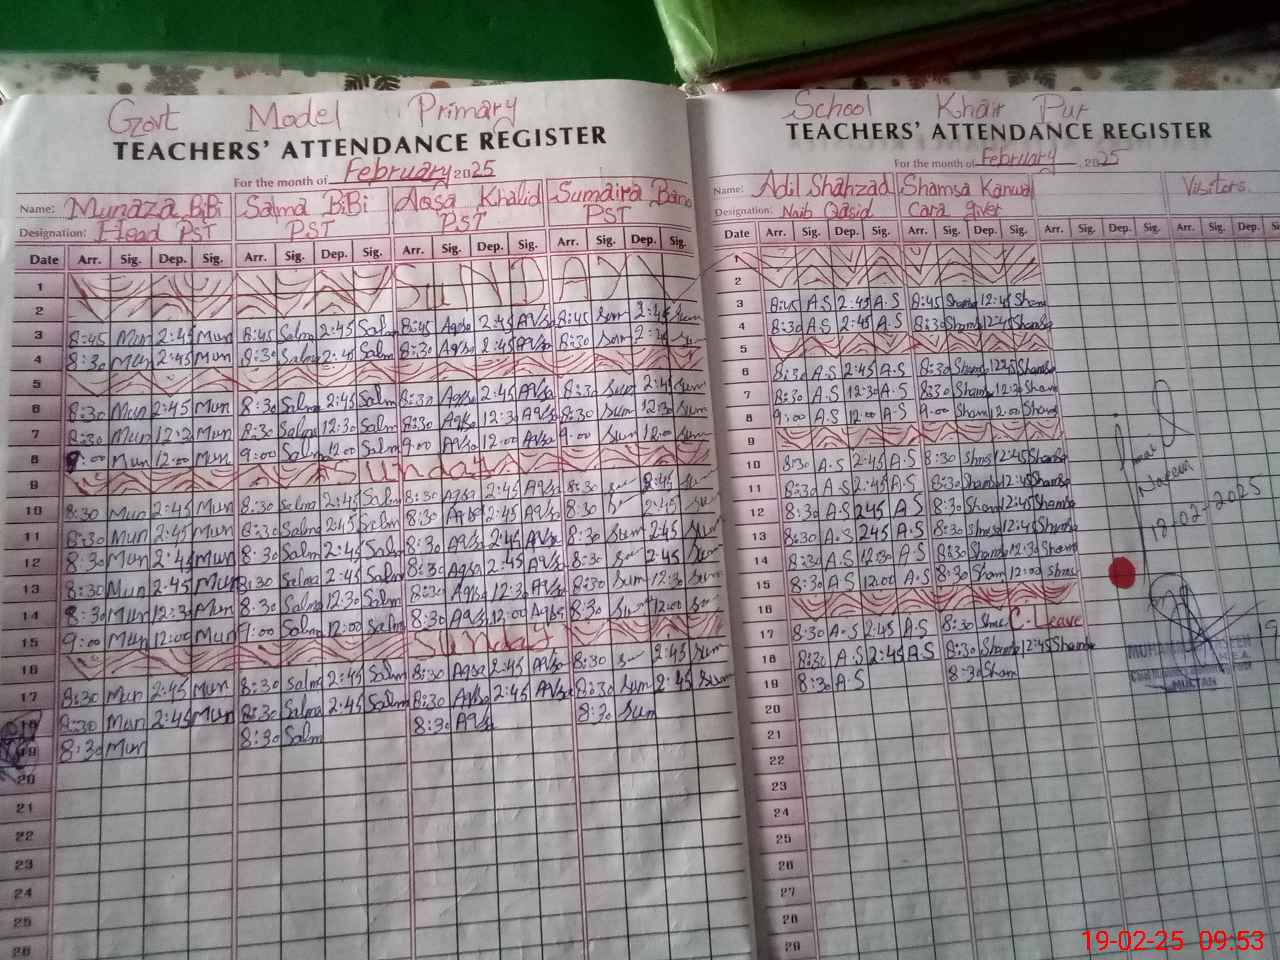 Govt Model Primary
TEACHERS' ATTENDANCE REGISTER
For the month of February 2025
Name: Munaza BiBi Salma BiBi Aqsa Khalid Sumaira Bano
Designation: Head PST PST PST PST
Date Arr. Sig. Dep. Sig. Arr. Sig. Dep. Sig. Arr. Sig. Dep. Sig. Arr. Sig. Dep. Sig.
1
2 SUNDAY
3 8:45 Mun 2:45 Mun 8:45 Salma 2:45 Salm 8:45 Aqsa 2:45 Aqsa 8:45 Sum 2:45 Sum
4 8:30 Mun 2:45 Mun 8:30 Salma 2:45 Salm 8:30 Aqsa 2:45 Aqsa 8:30 Sum 2:45 Sum
5
6 8:30 Mun 2:45 Mun 8:30 Salma 2:45 Salm 8:30 Aqsa 2:45 Aqsa 8:30 Sum 2:45 Sum
7 8:30 Mun Mun 8:30 Salma 12:30 Salm 8:30 Aqsa 12:30 Aqsa 8:30 Sum 12:30 Sum
8 9:00 Mun 12:00 Mun 9:00 Salma 12:00 Salm 9:00 Aqsa 12:00 Aqsa 9:00 Sum 12:00 Sum
9 Sunday
10 8:30 Mun 2:45 Mun 8:30 Salma 2:45 Salm 8:30 Aqsa 2:45 Aqsa 8:30 2:45
11 8:30 Mun 2:45 Mun 8:30 Salma 2:45 Salm 8:30 Aqsa 2:45 Aqsa 8:30 2:45
12 8:30 Mun 2:45 Mun 8:30 Salma 2:45 Salm 8:30 Aqsa 2:45 Aqsa 8:30 Sum 2:45 Sum
13 8:30 Mun 2:45 Mun 8:30 Salma 2:45 Salm 8:30 Aqsa 2:45 Aqsa 8:30 2:45 Sum
14 8:30 Mun 12:30 Mun 8:30 Salma 12:30 Salm 8:30 Aqsa 12:30 Aqsa 8:30 Sum 12:30 Sum
15 9:00 Mun 12:00 Mun 9:00 Salm 12:00 Salm 8:30 Aqsa 12:00 Aqsa 8:30 12:00
16 Sunday
17 8:30 Mun 2:45 Mun 8:30 Salm 2:45 Salm 8:30 Aqsa 2:45 Aqsa 8:30 2:45 Sum
18 8:30 Mun 2:45 Mun 8:30 Salma 2:45 Salm 8:30 Aqsa 2:45 Aqsa 8:30 Sum 2:45 Sum
19 8:30 Mun 8:30 Salm 8:30 Aqsa 8:30 Sum
20
21
22
23
24
25
26
School Khair Pur
TEACHERS' ATTENDANCE REGISTER
For the month of February, 2025
Name: Adil Shahzad Shamsa Kanwal Visitors
Designation: Naib Qasid Cara giver
Date Arr. Sig. Dep. Sig. Arr. Sig. Dep. Sig. Arr. Sig. Dep. Sig. Arr. Sig. Dep.
1
2
3 8:45 A.S 2:45 A.S 8:45 Shamsa 12:45 Shams
4 8:30 A.S 2:45 A.S 8:30 Shams 12:45 Shamsa
5
6 8:30 A.S 2:45 A.S 8:30 Shams 12:45 Shamsa
7 8:30 A.S 12:30 A.S 8:30 Sham 12:30 Sham
8 9:00 A.S 12:00 A.S 9:00 Sham 12:00 Shams
9
10 8:30 A.S 2:45 A.S 8:30 Shms 12:45 Shamsa
11 8:30 A.S 2:45 A.S 8:30 Shamsa 12:45 Shamsa
12 8:30 A.S 245 A.S 8:30 Shams 12:45 Shamsa
13 8:30 A.S 245 A.S 8:30 Shmsa 12:45 Shamsa
14 8:30 A.S 12:30 A.S 8:30 Shamsa 12:30 Sham
15 8:30 A.S 12:00 A.S 8:30 Sham 12:00 Shms
16
17 8:30 A.S 2:45 A.S 8:30 Shms C. Leave
18 8:30 A.S 2:45 A.S 8:30 Shamsa 12:45 Shamsa
19 8:30 A.S 8:30 Sham
20
21
22
23
24
25
26
27
28
29
Nadeem
18-02-2025
MULTAN
19
19-02-25 09:53